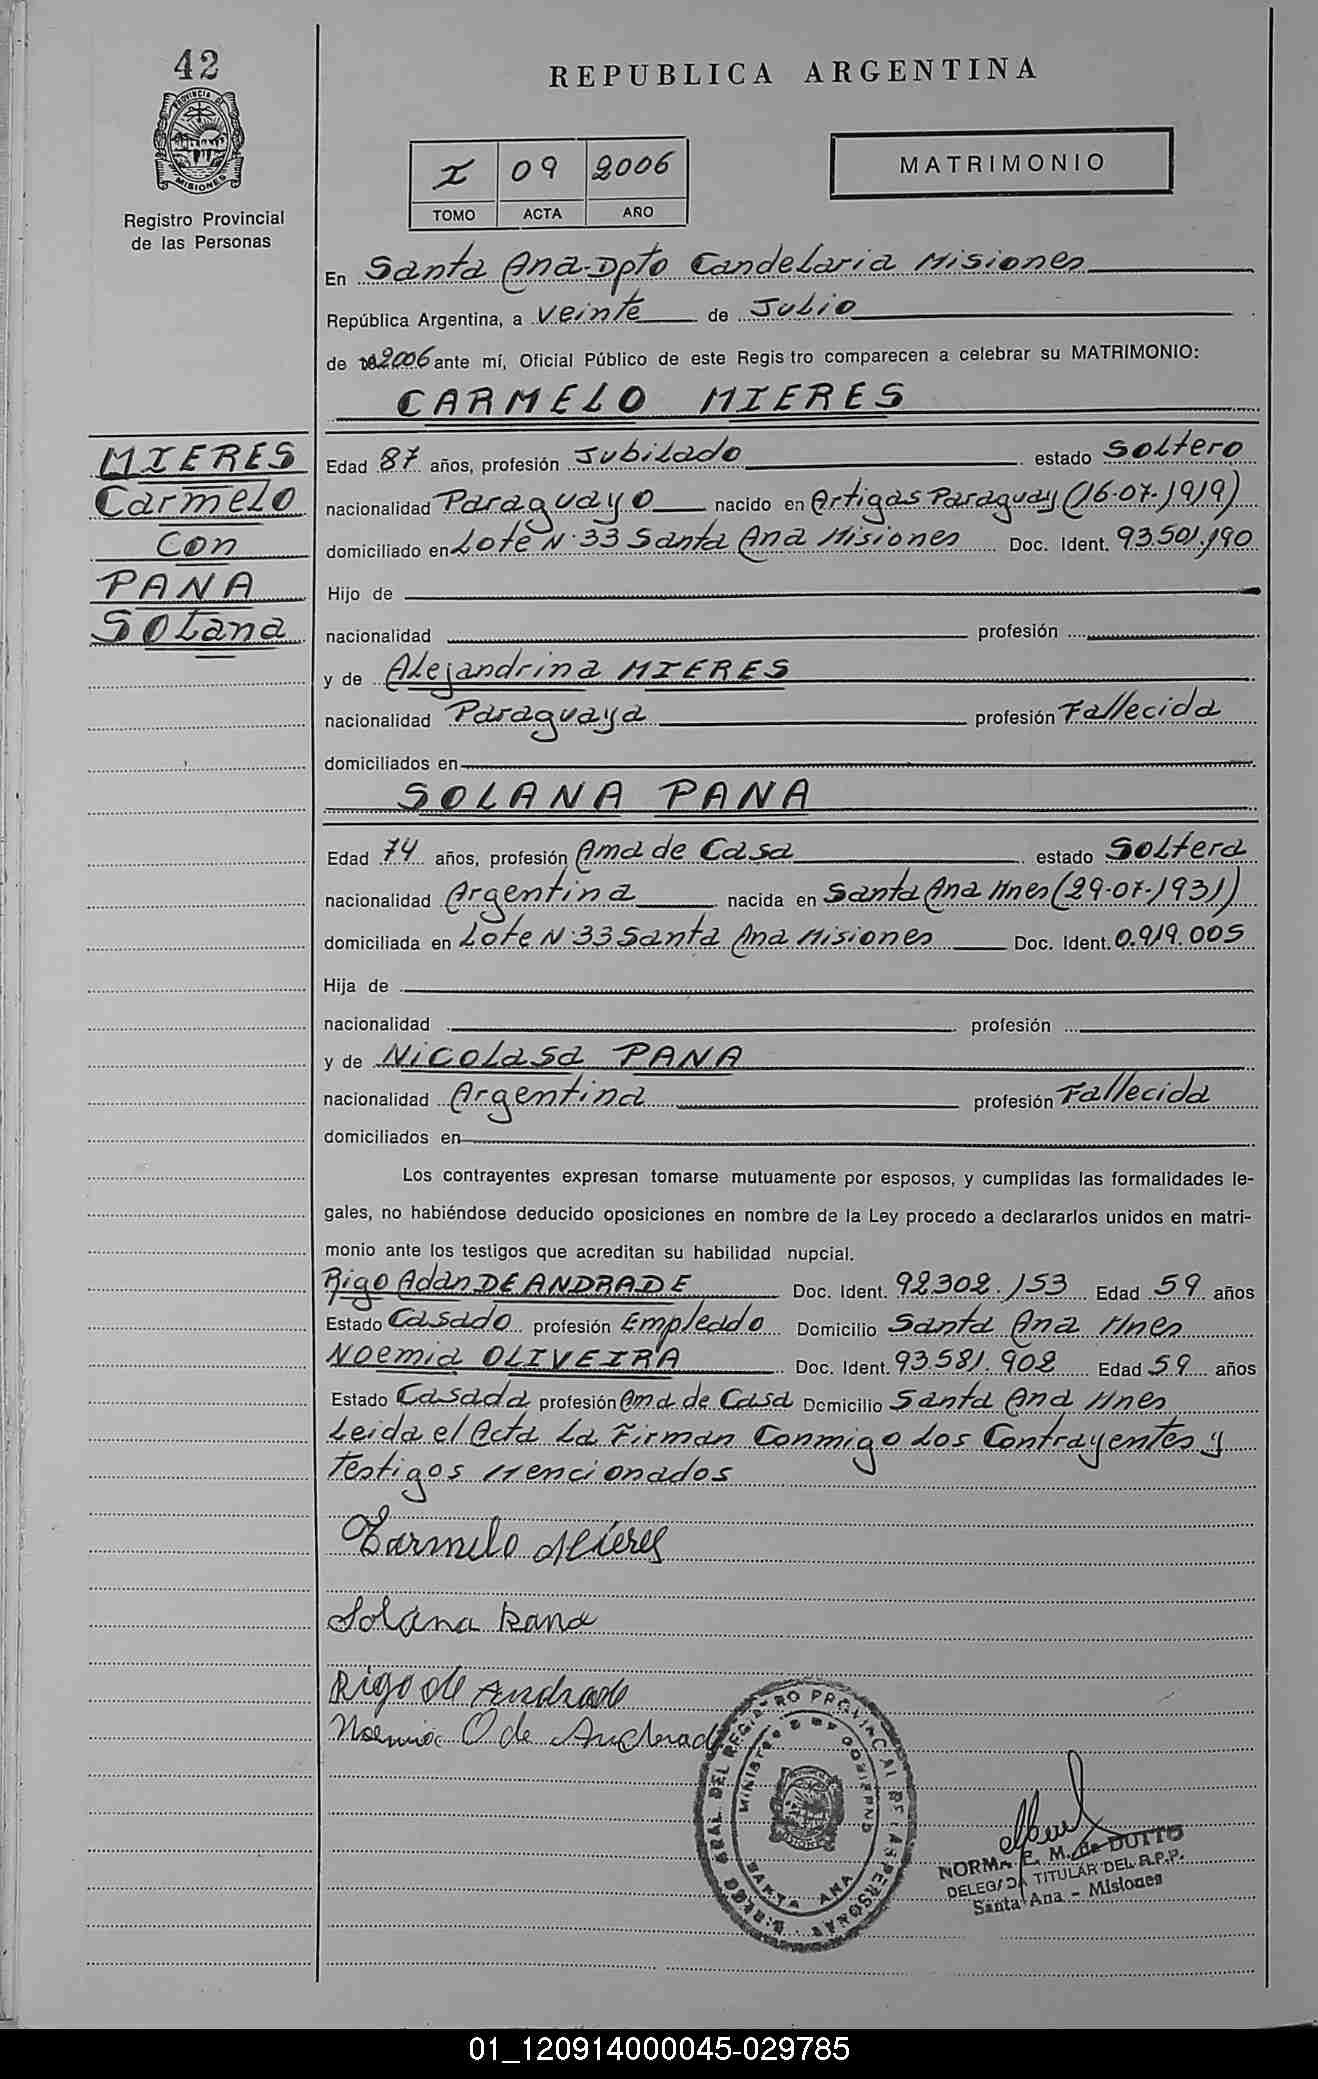 42
REPUBLICA ARGENTINA
PROVINCIA DE
MISIONES
Registro Provincial
de las Personas
I 09 2006
TOMO ACTA AÑO
MATRIMONIO
En Santa Ana-Dpto Candelaria Misiones
República Argentina, a veinte de Julio
de 2006 ante mí, Oficial Público de este Registro comparecen a celebrar su MATRIMONIO:
CARMELO MIERES
MIERES
Carmelo
Con
PANA
Solana
Edad 87 años, profesión Jubilado estado Soltero
nacionalidad Paraguayo nacido en Artigas Paraguay (16-07-1919)
domiciliado en Lote N 33 Santa Ana Misiones Doc. Ident. 93.501.190
Hijo de
nacionalidad profesión
y de Alejandrina MIERES
nacionalidad Paraguaya profesión Fallecida
domiciliados en
SOLANA PANA
Edad 74 años, profesión Ama de Casa estado Soltera
nacionalidad Argentina nacida en Santa Ana Mnes (29-07-1931)
domiciliada en Lote N 33 Santa Ana Misiones Doc. Ident. 0.919.005
Hija de
nacionalidad profesión
y de Nicolasa PANA
nacionalidad Argentina profesión Fallecida
domiciliados en
Los contrayentes expresan tomarse mutuamente por esposos, y cumplidas las formalidades le-
gales, no habiéndose deducido oposiciones en nombre de la Ley procedo a declararlos unidos en matri-
monio ante los testigos que acreditan su habilidad nupcial.
Rigo Adan DE ANDRADE Doc. Ident. 92302.153 Edad 59 años
Estado Casado profesión Empleado Domicilio Santa Ana Mnes
Noemia OLIVEIRA Doc. Ident. 93.581.902 Edad 59 años
Estado Casada profesión Ama de Casa Domicilio Santa Ana Mnes
Leida el Acta La Firman Conmigo Los Contrayentes y
Testigos Mencionados
Carmelo Mieres
Solana Pana
Rigo de Andrade
Noemia O de Andrade
GRAL. DEL REGISTRO PROVINCIAL DE LAS PERSONAS
MINISTERIO DE GOBIERNO
SANTA ANA
NORMA E. M. de DUTTO
DELEGADA TITULAR DEL R.P.P.
Santa Ana - Misiones
01_120914000045-029785